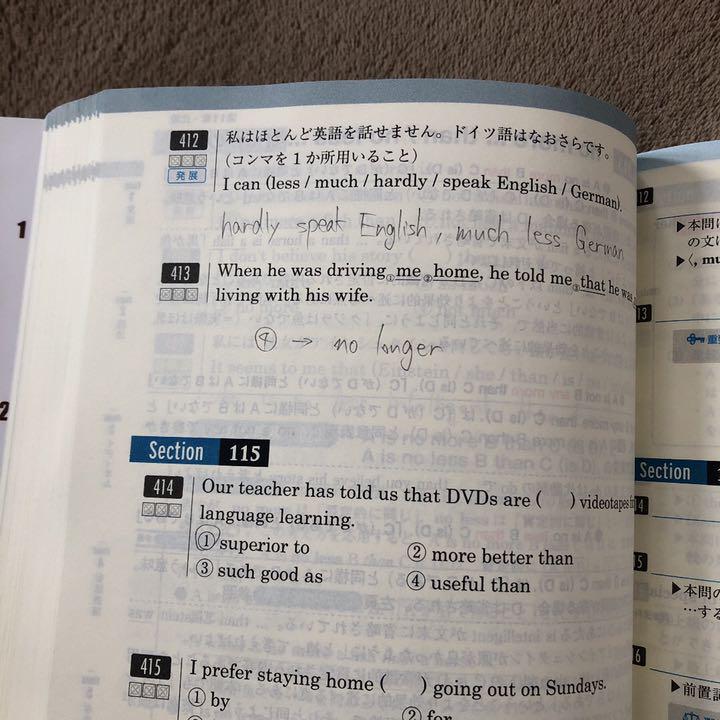 412 私はほとんど英語を話せません。ドイツ語はなおさらです。
発展 (コンマを1か所用いること)
I can (less / much / hardly / speak English / German).
hardly speak English, much less German
413 When he was driving ①me ②home, he told me ③that he was
living with his wife.
④ → no longer
Section 115
414 Our teacher has told us that DVDs are ( ) videotapes
language learning.
① superior to ② more better than
③ such good as ④ useful than
415 I prefer staying home ( ) going out on Sundays.
① by ② for
1
2
12
▶本問
の文に
13
重要
Section
▶本問の
…する
6
▶前置